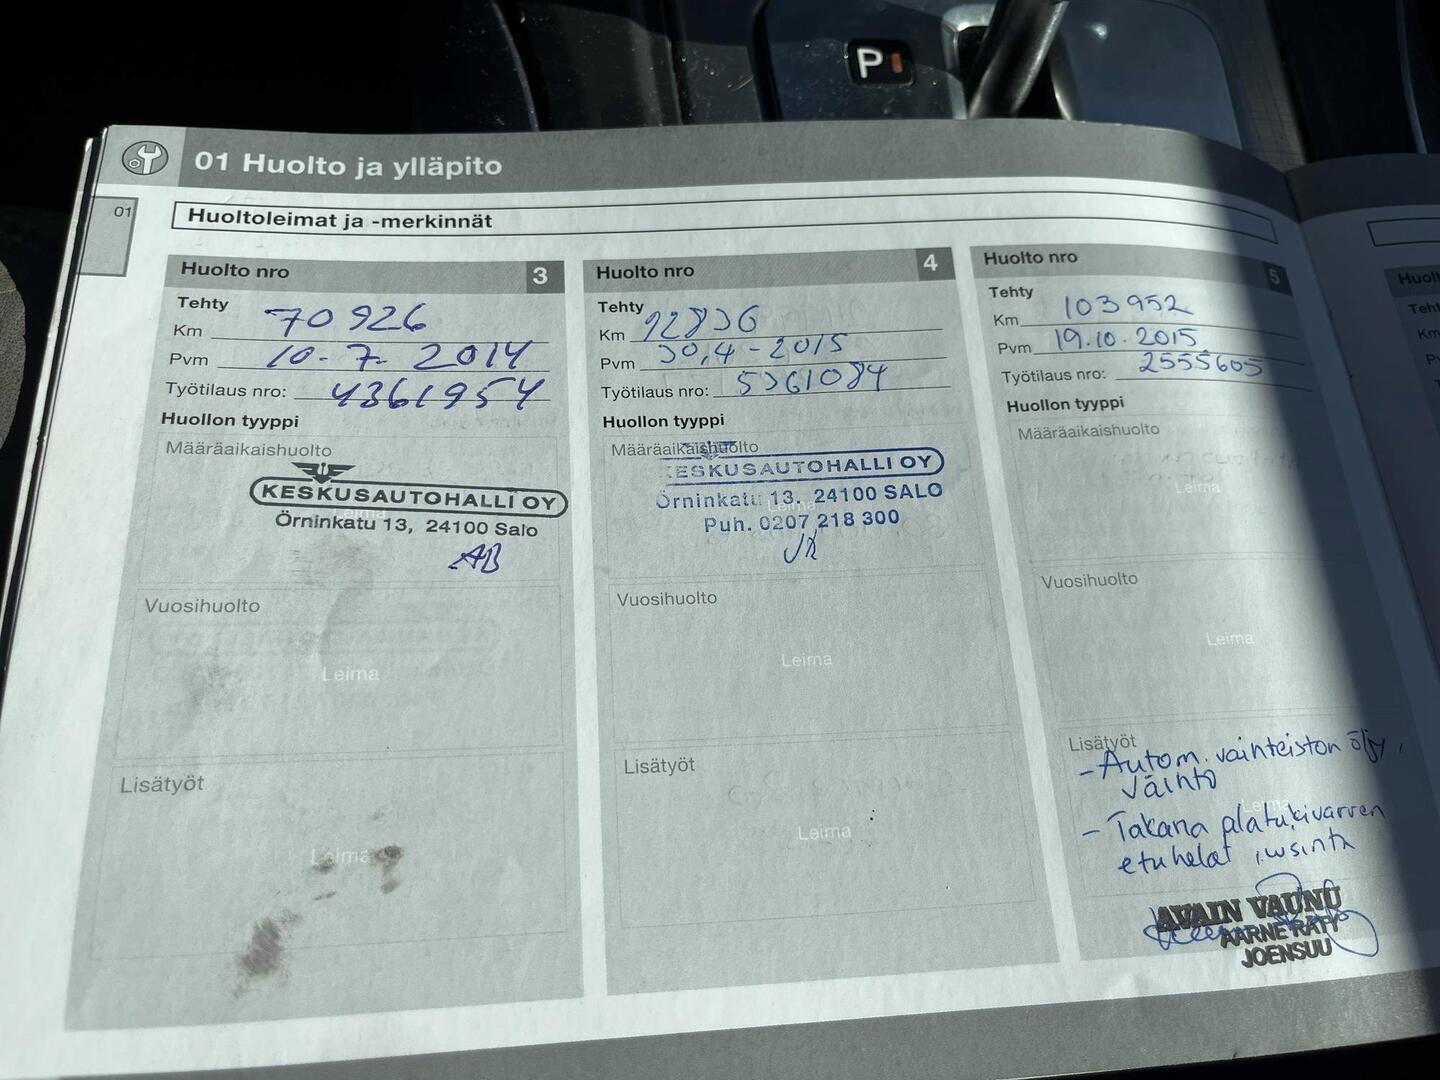 P
01 Huolto ja ylläpito
01
Huoltoleimat ja -merkinnät
Huolto nro 3
Tehty
Km 70 926
Pvm 10-7. 2014
Työtilaus nro: 4361954
Huollon tyyppi
Määräaikaishuolto
Leima
KESKUSAUTOHALLI OY
Örninkatu 13, 24100 Salo
AB
Vuosihuolto
Leima
Lisätyöt
Leima
Huolto nro 4
Tehty
Km 92836
Pvm 30.4-2015
Työtilaus nro: 5361084
Huollon tyyppi
Määräaikaishuolto
KESKUSAUTOHALLI OY
Örninkatu 13. 24100 SALO
Leima
Puh. 0207 218 300
Vuosihuolto
Leima
Lisätyöt
Leima
Huolto nro 5
Tehty
Km 103 952
Pvm 19.10.2015
Työtilaus nro: 2555605
Huollon tyyppi
Määräaikaishuolto
Leima
Vuosihuolto
Leima
Lisätyöt
- Autom. vainteiston öljy
väihto
Leima
- Takana alatukivarren
etuhelat
AVAIN VAUNU
AARNE RÄTY
JOENSUU
Huolt
Teht
Km